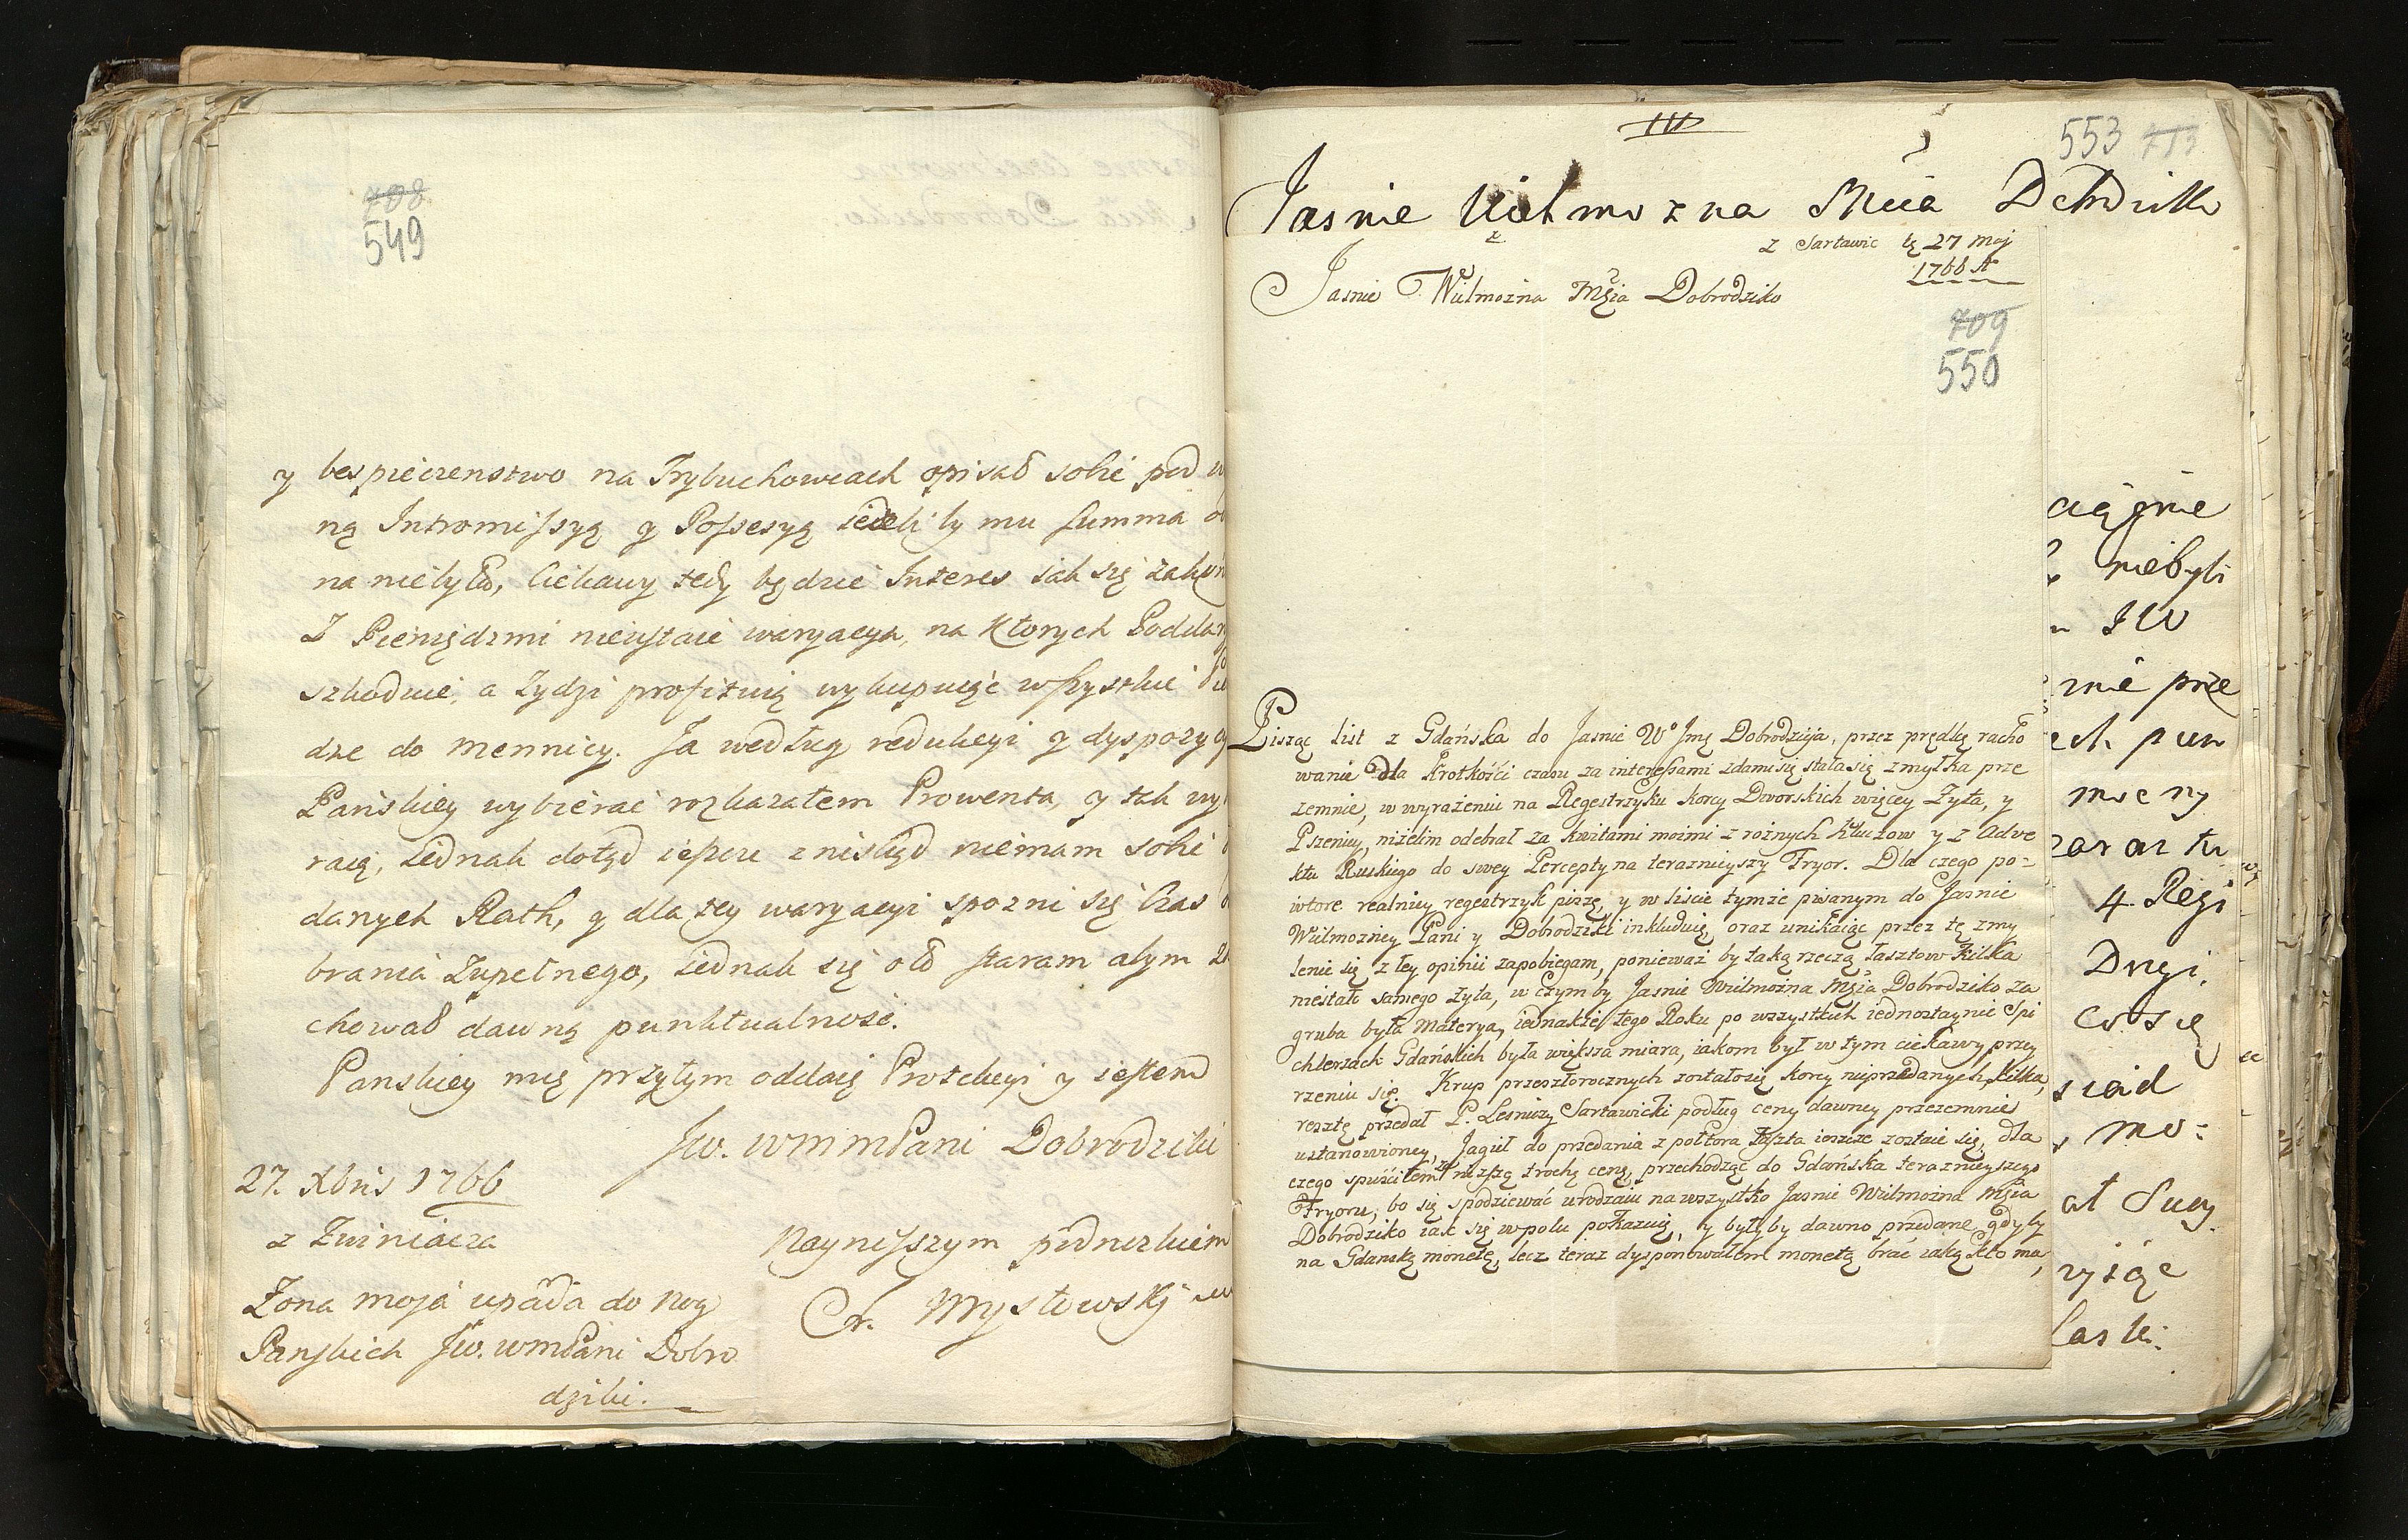 708
549
y bespieczenstwo na Trybuchowcach opisał sobie pod
ną Intromissyą y Possesyą ieżeliby mu summa
na niebyła, Ciekawy tedy będzie Interes iak się
Z Pieniędzmi nieustaie waryacya, na ktorych
szkoduie, a Zydzi profituią wykupuiąc wszystkie
dze do mennicy. Ja według redukcyi y
Pańskiey wybierać rozkazałem Prowenta, y tak
raią, iednak dotąd ieszcze znikąd niemam sobie
danych Rath, y dla tey waryacyi spozni się Czas
brania Zupełnego, iednak się o to staram abym
chował dawną punktualność.
Panskiey mię przytym oddaię Protekcyi y iestem
Jw. WMMPani Dobrodziki
27. Xbris 1766
z Zwiniacza
Nayniższym podnozkiem
Mysłowski
Zona moja upada do nog
Panskich Jw. WMPani Dobro
dziki.
III
553 713
Jasnie Wielmozna Mcia Dobrodziko
z Sartawic 27 Maj
1766
Jasnie Wielmożna Mścia Dobrodziko
709
550
Pisząc list z Gdańska do Jasnie Wo Jmę Dobrodzija, przez prędkę racho
wanie dla krotkości czasu za interessami zdami się stała się zmyłka prze
zemnie, w wyrażeniu na Regestrzyku korcy Dworskich więcey Zyta, y
Pszenicy, niżelim odebrał za kwitami moimi z rożnych kluczow y z Adve
ktu Ruskiego do swey Percepty na teraznieyszy Fryor. Dla czego po=
wtore realniey regestrzyk piszę, y w liście tymże pisanym do Jasnie
Wielmozney Pani y Dobrodziki inkluduię, oraz unikaiąc przez tę zmy
lenie się z tey opinii zapobiegam, ponieważ by taką rzeczą łasztow kilka
niestało samego żyta, w czym by Jasnie Wielmożna Mścia Dobrodziko za
gruba była materya, iednakże tego Roku po wszystkich iednostaynie Spi
chlerzach Gdańskich była większa miara, iakom był w tym ciekawy przey
rzeniu się. Krup przeszłorocznych zostało się korcy nieprzedanych kilka,
resztę przedał P. Lesniczy Sartawicki podług ceny dawney przezemnie
ustanowioney, Jagieł do przedania z połtora łaszta ieszcze zostaie się, dla
czego spuściłem niższą trochę cenę, przechodząc do Gdańska terazniejszego
Fryoru, bo się spodziewać urodzaiu na wszystko Jasnie Wielmożna Mścia
Dobrodziko iak się w polu pokazuie, y byłyby dawno przedane gdyby
na Gdanską monetę, lecz teraz dysponowałem monetą brać iaką kto ma,
ciągnie
niebyli
JW
mie prze
pun
mocny
4 Regi
Drugi,
co się
siad
mo: